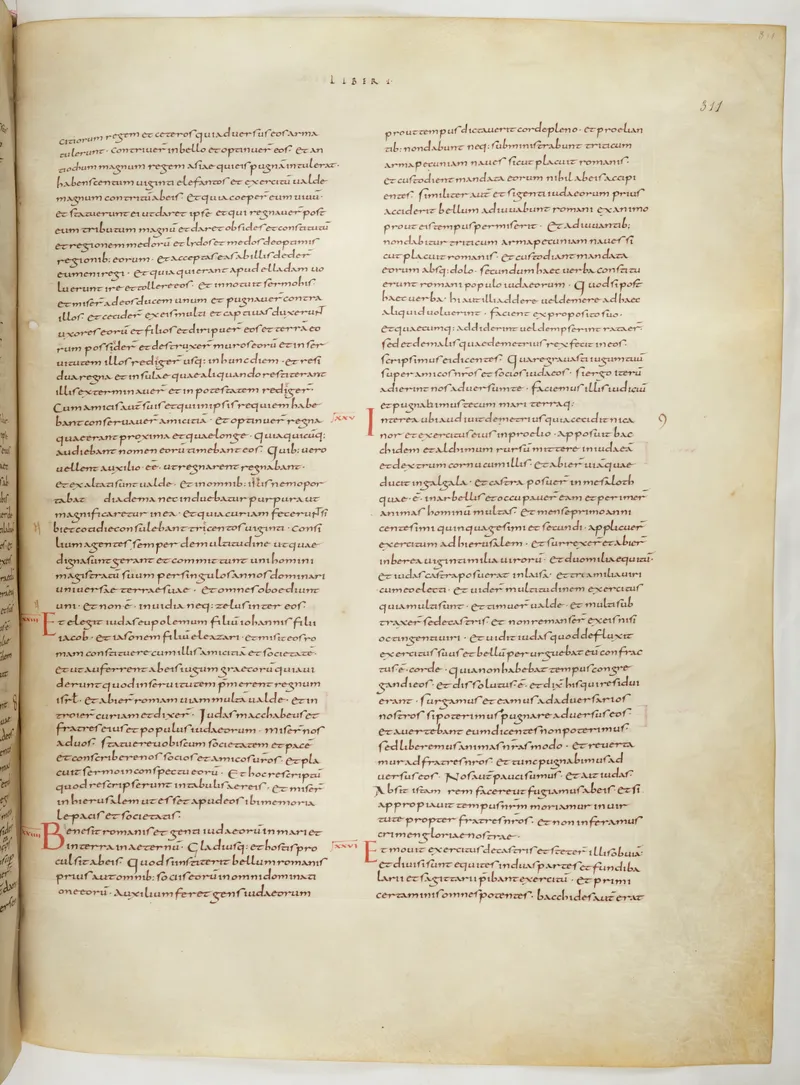 LIBER I
311
citiorum regem et ceteros qui aduersus eos arma
tulerunt · contriuer̄ in bello et optinuer̄ eos · Et an
tiochum magnum regem asiae qui eis pugnā intulerat ·
habens centum uiginti elefantos et exercitū ualde
magnum contritū ab eis · Et quia coeper̄ eum uiuū ·
et statuerunt ei ut daret ipse et qui regnauer̄ post
eum tributum magnū et daret obsides et constitutū
et regionem medorū et lydos et medos de optimis
regionib: eorum · Et acceptas eas ab illis deder̄
eumeni regi · Et quia qui erant apud elladam uo
luerunt ire et tollere eos · Et innotuit sermo his
et miser̄ ad eos ducem unum et pugnauer̄ contra
illos · Et cecider̄ ex eis multi et captiuas duxerunt
uxores eorū et filios et diripuer̄ eos et terrā eo
rum posseder̄ et destruxer̄ muros eorū et in ser
uitutem illos rediger̄ usq: in hunc diem · et resi
dua regna et insulae quae aliquando restiterant
illis exterminauer̄ et in potestatem rediger̄
Cum amicis aūt suis et qui in ipsis requiem habe
bant conseruauer̄ amicitiā · Et optinuer̄ regna
quae erant proxima et quae longe · quia quicūq:
audiebant nomen eorū timebant eos · Quib: uero
uellent auxilio · eē · ut regnarent regnabant ·
et exaltati sunt ualde · Et in omnib: illis nemo por
tabat diadema nec induebatur purpura ut
magnificaretur in ea · Et quia curiam fecerunt si
bi et cotidie consulebant tricentos uiginti · consi
lium agentes semper de multitudine ut quae
digna sunt gerant et committunt uni homini
magistratū suum per singulos annos dominari
uniuersae terrae suae · Et omnes oboediunt
uni · Et non ē · inuidia neq: zelus inter eos ·
XXIII
Et elegit iudas eupolemum filiū iohannis filii
iacob · et iasonem filiū eleazari · et misit eos ro
mam constituere cum illis amicitiā et societatē ·
et ut auferrent ab eis iugum graecorū quia ui
derunt quod in seruitutem p̄merent regnum
isrl̄ · Et abier̄ romam uiam multā ualde · et in
troier̄ curiam et dixer̄ · Judas macchabeus et
fratres eius et populus iudaeorum · miser̄ nos
ad uos · statuere uobiscum societatem et pacē
et conscribere nos socios et amicos uros · et pla
cuit sermo in conspectu eorū · Et hoc rescriptū
quod rescripserunt in tabulis aereis · et miser̄
in hierusalem ut esset apud eos ibi memoria
lepacis et societatis ·
XXIIII
Bene sit romanis et genti iudaeorū in mari et
in terra in aeternū · Gladiusq: et hostis pro
cul sit ab eis · Quod si insteterit bellum romanis
prius aut omnib: sociis eorū in omni dominati
one eorū · Auxilium feret gens iudaeorum
prout tempus dictauerit corde pleno · et proelian
tib: non dabunt neq: subministrabunt triticum
arma pecuniam naues sicut placuit romanis ·
et custodient mandata eorum nihil ab eis accipi
entes · similiter aūt et si genti iudaeorum prius
acciderit bellum adiuuabunt romani ex animo
prout eis tempus permiserit · Et adiuuantib;
non dabitur triticum arma pecuniam naues si
cut placuit romanis · et custodient mandata
eorum absq: dolo · secundum haec uerba constitu
erunt romani populo iudaeorum · Quod si post
haec uerba · hi aut illi addere uel demere ad haec
aliquid uoluerint · facient ex proposito suo ·
et quaecumq: addiderint uel dempserint rata er̄
sed et de malis quae demetrius rex fecit in eos ·
scripsimus ei dicentes · Quare grauasti iugum tuū
super amicos nros et socios iudaeos · si ergo iterū
adierint nos aduersum te · faciemus illis iudiciū
et pugnabimus tecum mari terraq:
XXV
Interea ubi audiuit demetrius quia cecidit nica
nor et exercitus eius in proelio · apposuit bac
chidem et alchimum rursū mittere in iudaeā
et dextrum cornu cum illis · et abier̄ uiā quae
ducit in galgala · et castra posuer̄ in mesaloth
quae · ē · in arbellis et occupauer̄ eam et permer̄
animas hominū multas · Et mense primo anni
centesimi quinquagesimi et secundi · applicuer̄
exercitum ad hierusalem · Et surrexer̄ et abier̄
in berea uiginti milia uirorū · et duo milia equitū ·
et iudas castra posuerat in laisa · et tria milia uiri
cum eo electi · et uider̄ multitudinem exercitus
quia multi sunt · et timuer̄ ualde · et multi sub
traxer̄ se de castris · et non remanser̄ ex eis nisi
octingenti uiri · Et uidit iudas quod defluxit
exercitus suus et bellū perurguebat eū confrac
tus · ē · corde · quia non habebat tempus congre
gandi eos · et dissolutus · ē · et dix̄ his qui residui
erant · surgamus et eamus ad aduersarios
nostros si poterimus pugnare aduersus eos ·
et auertebant eum dicentes non poterimus ·
sed liberemus animas nras modo · et reuerta
mur ad fratres nros · et tunc pugnabimus ad
uersus eos · Nos aūt pauci sumus · Et ait iudas ·
Absit istam rem facere ut fugiamus ab eis · et si
appropiauit tempus nrm moriamur in uir
tute propter fratres nros · et non inferamus
crimen gloriae nostrae ·
XXVI
Et mouit exercitus de castris et steter̄ illis obuiā ·
et diuisi sunt equites in duas partes et fundiba
larii et sagittarii p̄ibant exercitū · et primi
certaminis omnes potentes · bacchides aūt erat